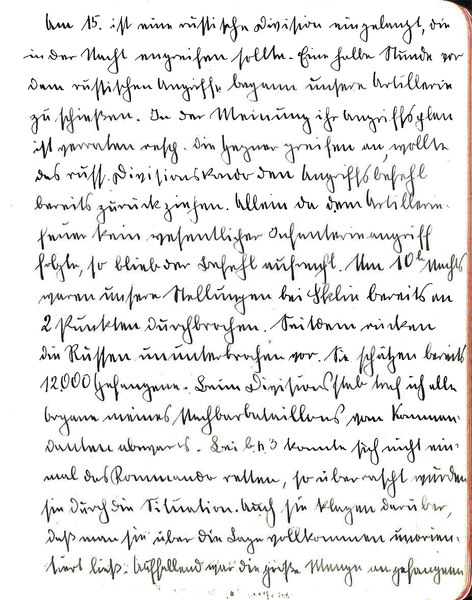 Am 15. ist eine russische Division eingelangt, die
in der Nacht angreifen sollte. Eine halbe Stunde vor
dem russischen Angriffe begann unsere Artillerie
zu schießen. In der Meinung ihr Angriffsplan
ist verraten resp. die Gegner greifen an, wollte
das russ. Divisionskondo den Angriffsbefehl
bereits zurückziehen. Allein da dem Artillerie-
feuer kein wesentlicher Infanterieangriff
folgte, so blieb der Befehl aufrecht. Um 10h Nachts
waren unsere Stellungen bei Sklin bereits an
2 Punkten durchbrochen. Seitdem rücken
die Russen ununterbrochen vor. Sie schätzen bereits
12000 Gefangene. Beim Divisionsstab traf ich alle
Organe meines Nachbarbataillons vom Komman-
danten abwärts. Bei b.h 3 konnte sich nicht ein-
mal das Kommando retten, so überrascht wurden
sie durch die Situation. Auch sie klagen darüber,
daß man sie über die Lage vollkommen unorien-
tiert ließ. Auffallend war die große Menge an gefangenen